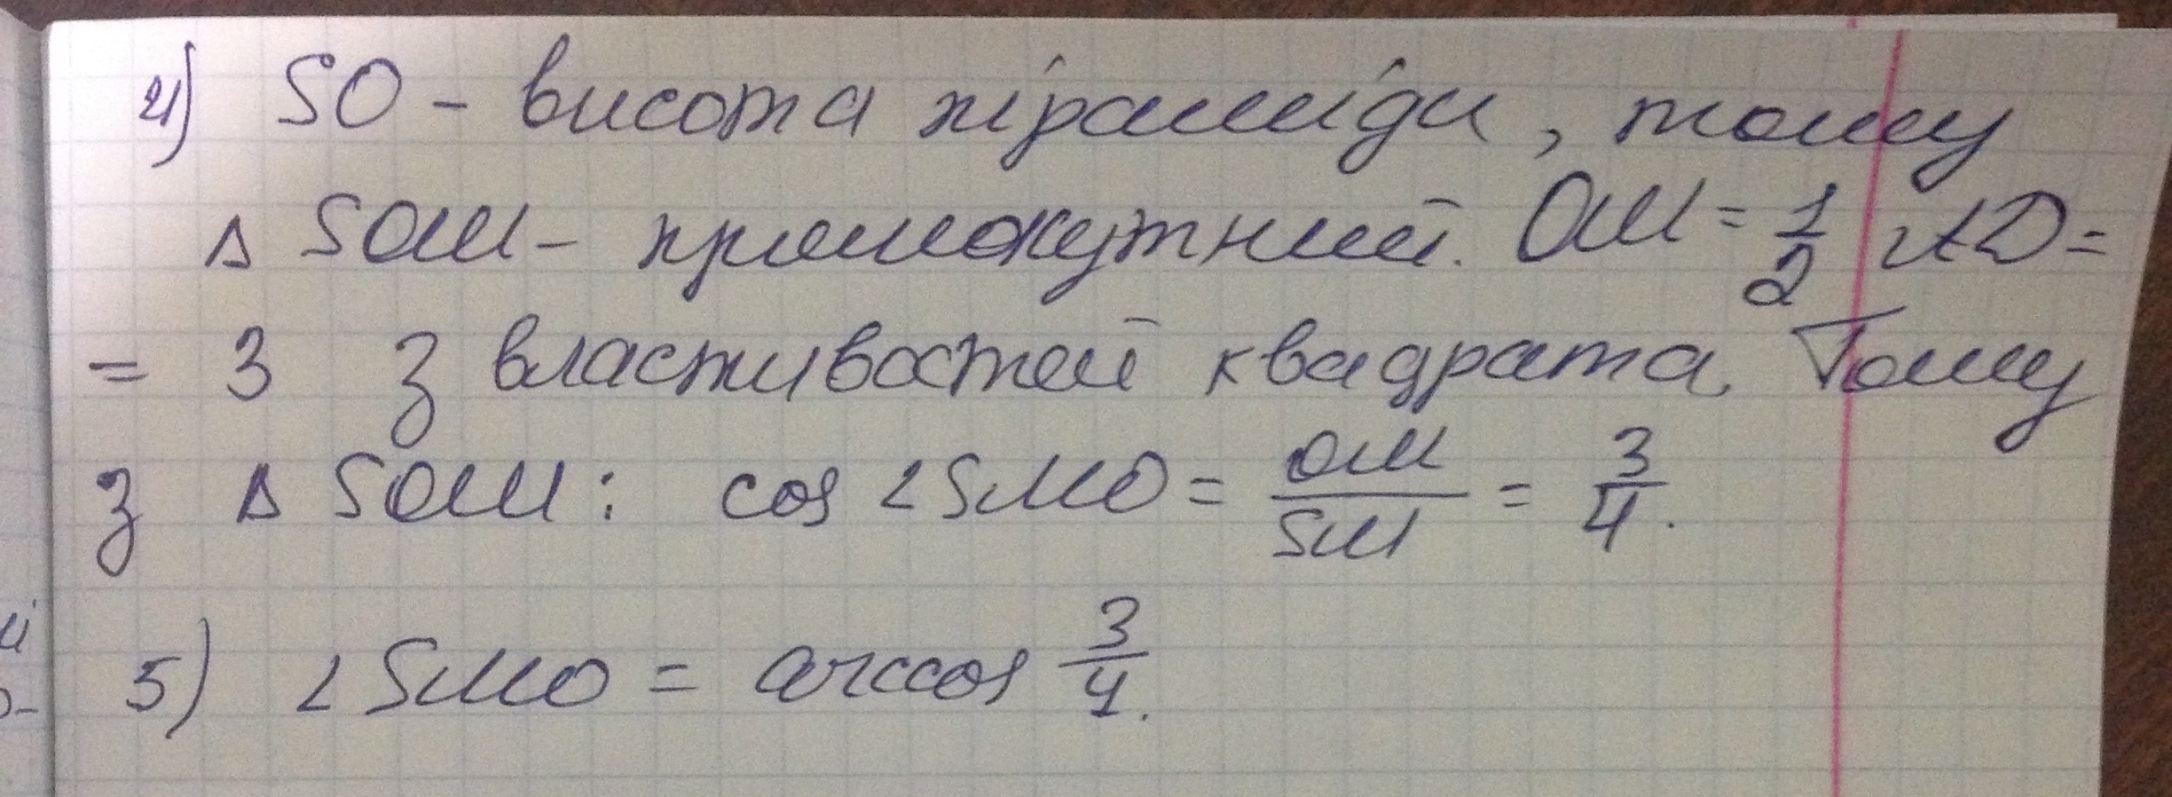 4) SO - висота піраміди, тому
Δ SOM - прямокутний. OM = 1/2 AD =
= 3 з властивостей квадрата. Тому
з Δ SOM: cos ∠SMO = OM/SM = 3/4.
5) ∠SMO = arccos 3/4.